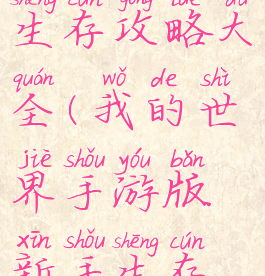 shēng cún gōng lüè dà
生存攻略大
quán wǒ de shì
全(我的世
jiè shǒu yóu bǎn
界手游版
xīn shǒu shēng cún
新手生存